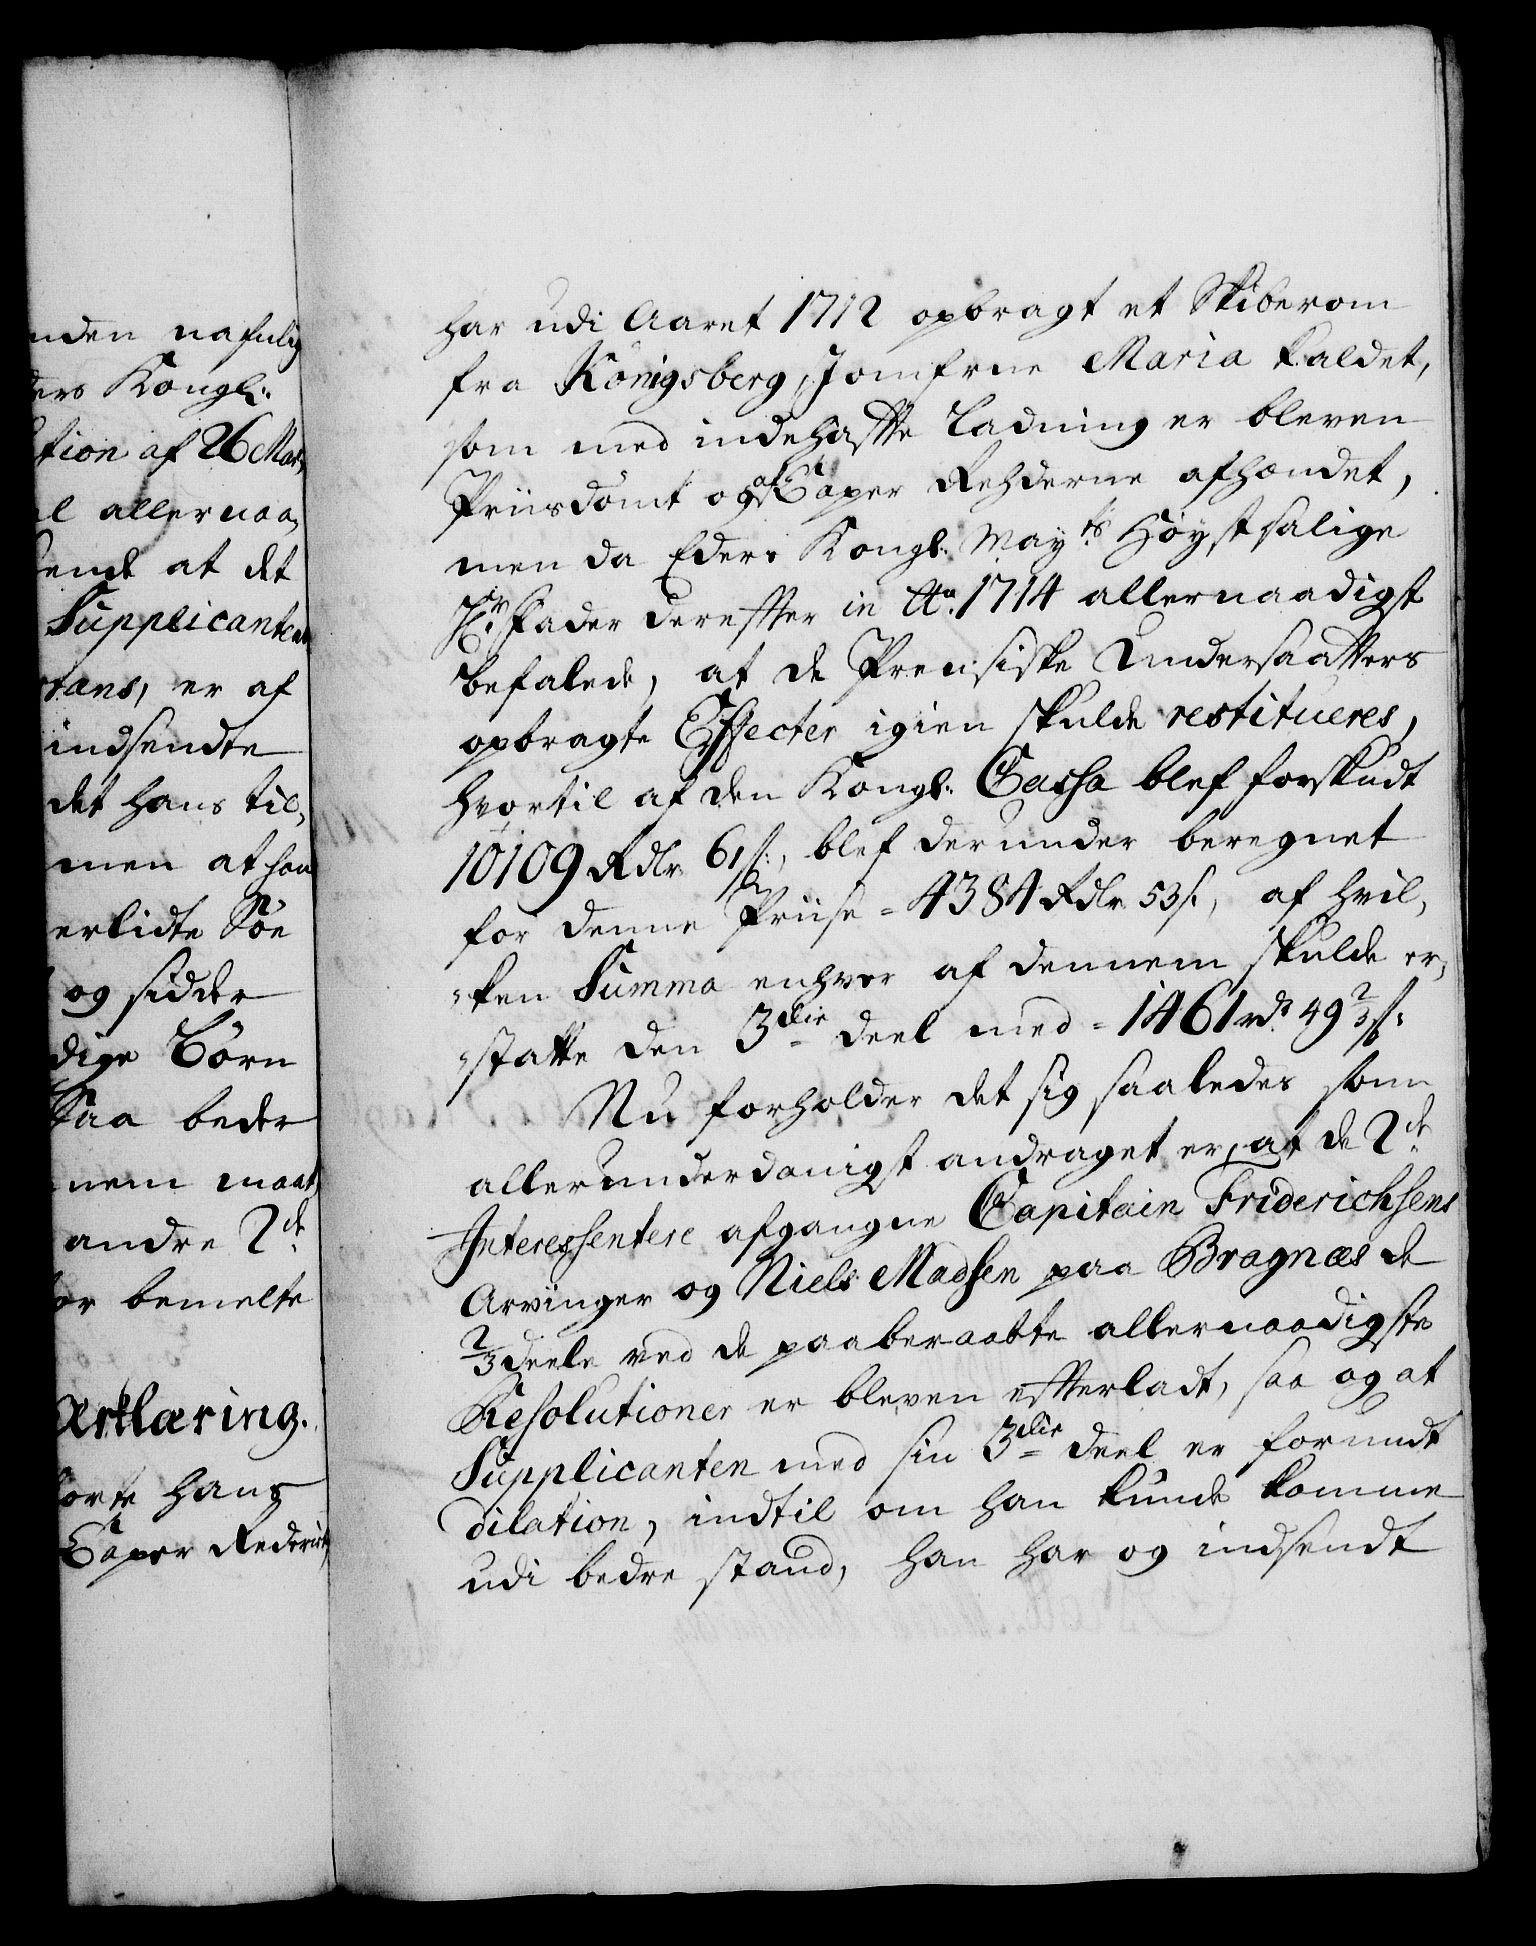 nden nafnlig
ders Kongl:
ution af 26 Mar,
el allernaa,
kende at det
Supplicanten
stans, er af
indsendte
det hans til,
men at han
erlidte Søe
og sidder
dige Børn
Saa beder
nem maat,
andre 2de
for bemelte
Ærklæring.
forte hans
Caper Rederie,
har udi Aaret 1712 opbragt et Skiberom
fra Königsberg, Jomfrue Maria kaldet,
som med indehaffte Ladning er bleven
Priisdömt og af Caper Rehderne afhændet,
men da Eders Kongl: Mayts Høystsalige
Hr Fader derefter in Ao. 1714 allernaadigst
befalede, at de Preusiske Undersaatters
opbragte Effecter igien skulde restitueres,
hvortil af den Kongl: Cassa blef forskudt
10109 Rdlr 61 s:, blef derunder beregnet
for denne Priise = 4384 Rdlr 53 s:, af hvil,
=ken Summa enhver af dennem skulde er,
=statte den 3die deel med = 1461 rd. 49 2/3 s:
Nu forholder det sig saaledes som
allerunderdanigst andraget er, at de 2de
Interessentere afgangne Capitain Friderichsens
Arvinger og Niels Madsen paa Bragnæs de
2/3 deele ved de paaberaabte allernaadigste
Resolutioner er bleven efterladt, saa og at
Supplicanten med sin 3die deel er forundt
dilation, indtil om han kunde komme
udi bedre stand, han har og indsendt